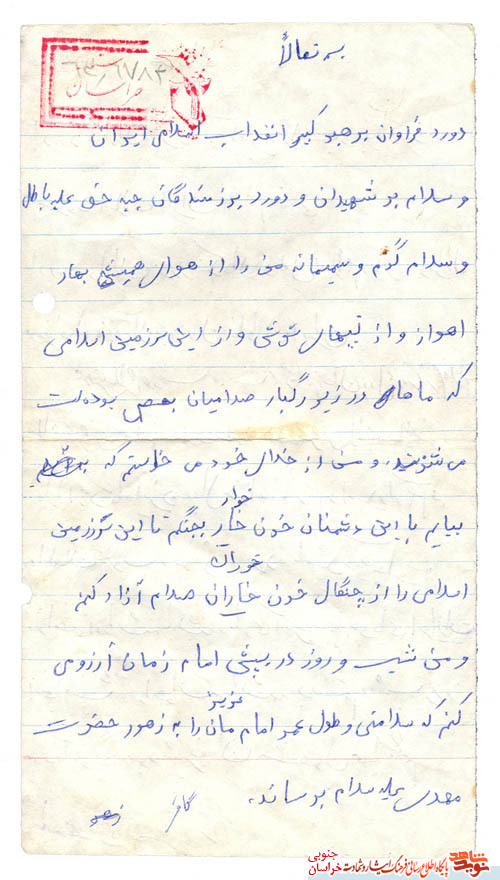 به تعالاً
۶۳/۱۷۸۳
خراسان
درود فراوان بر رهبر کبیر انقلاب اسلامی ایران
و سلام بر شهیدان و درود بر رزمندگان جبه حق علیه باطل
و سلام گرم و سمیمانه من را از هوای همیشه بهار
اهواز و از تپهای شوش و از این سرزمین اسلامی
که ماها در زیر رگبار صدامیان بعصی بوده است
و من از خدای خود می خاستم که
بیایم با این دشمنان خون خار بجنگم تا این سرزمین
خوار
اسلامی را از چنگال خون خاران صدام آزاد کنم
خوران
و من شب و روز در پیش امام زمان آرزو می
کنم که سلامتی و طول عمر امام مان را به زهور حضرت
عزیز
مهدی علیه سلام برساند.
نوید شاهد
پایگاه اطلاع رسانی فرهنگ ایثار و شهادت
خراسان جنوبی